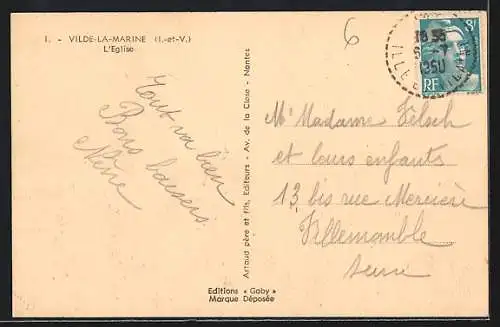 1. - VILDE-LA-MARINE (I.-et-V.)
L'Eglise
6
Tout va bien
Bons baisers
Artaud père et fils, Editeurs - Av. de la Close - Nantes
1950
ILLE
8F
RF
Mr Madame
et leurs enfants
13 bis rue Mercier
Villemomble
Seine
Editions « Gaby »
Marque Déposée